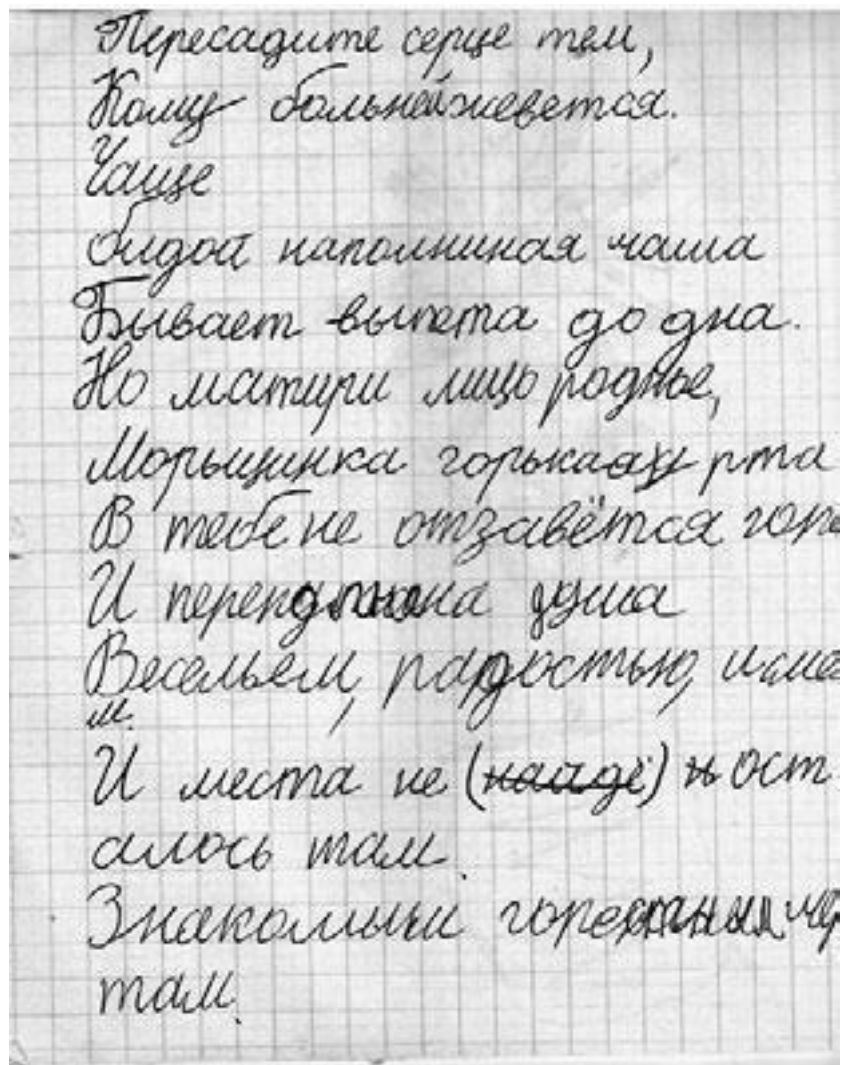 Пересадите серце тем,
Кому больнейжеветса.
Чаще
бидой наполниная чаша
Бывает выпета до дна.
Но матири лицо родное,
Морыщинка горькаяу рта
В тебе не отзавётся горе
И душа
Весельем, радостью, и сме
м.
И места не (найдё) н ост
алось там.
Знакомым горестным чер
там.